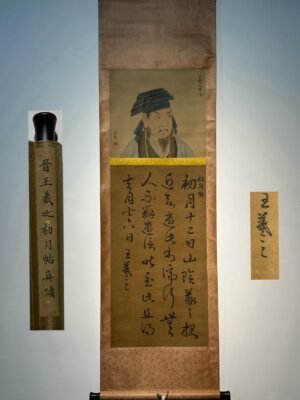 初月帖
初月十二日山陰羲之報
近欲遣此書停行無
人不辦遣信昨至此且得
去月十六日王羲之
晉王羲之初月帖真蹟
王羲之